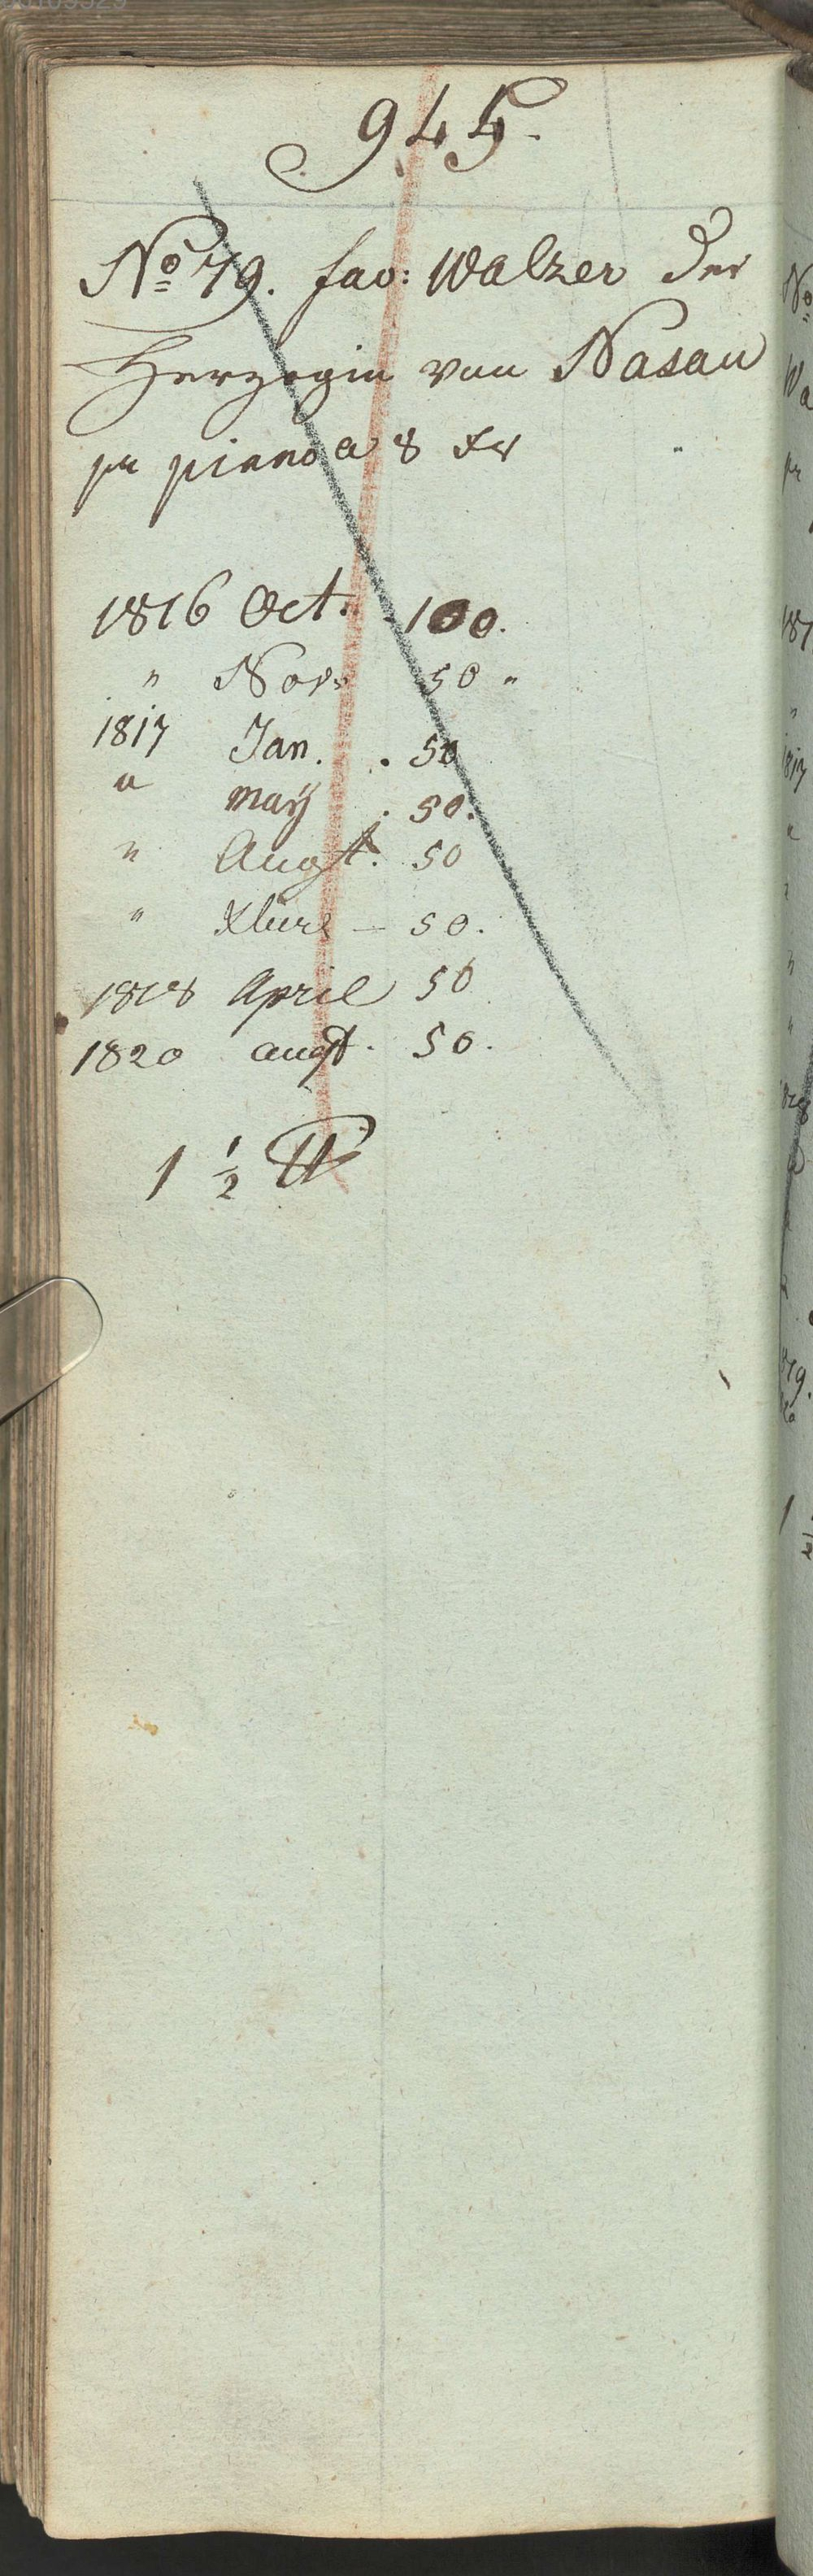 945.
No 79. fav: Walzer der
Herzogin von Nasau
pr piano a 8 xr
1816 Oct. . 100.
" Nov: 50 "
1817 Jan. . 50
" may . 50.
" Augst. 50
" Xbure — 50.
1818 April 50
1820 augst. 50.
1 1/2